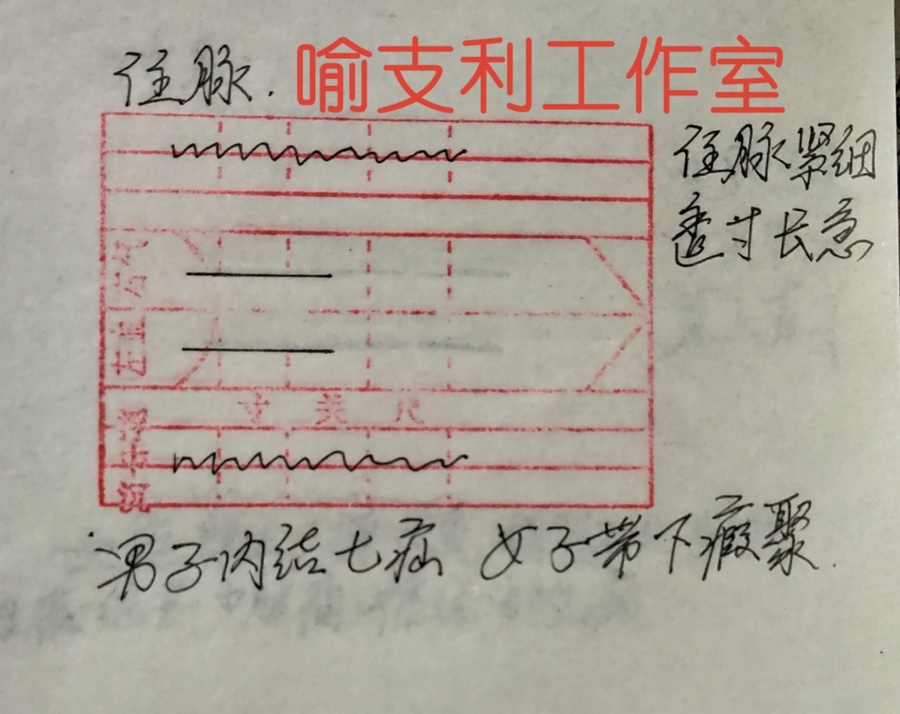 任脉.
喻支利工作室
任脉紧细
寸长急
寸 关 尺
浮
中
沉
男子内结七疝 女子带下瘕聚.